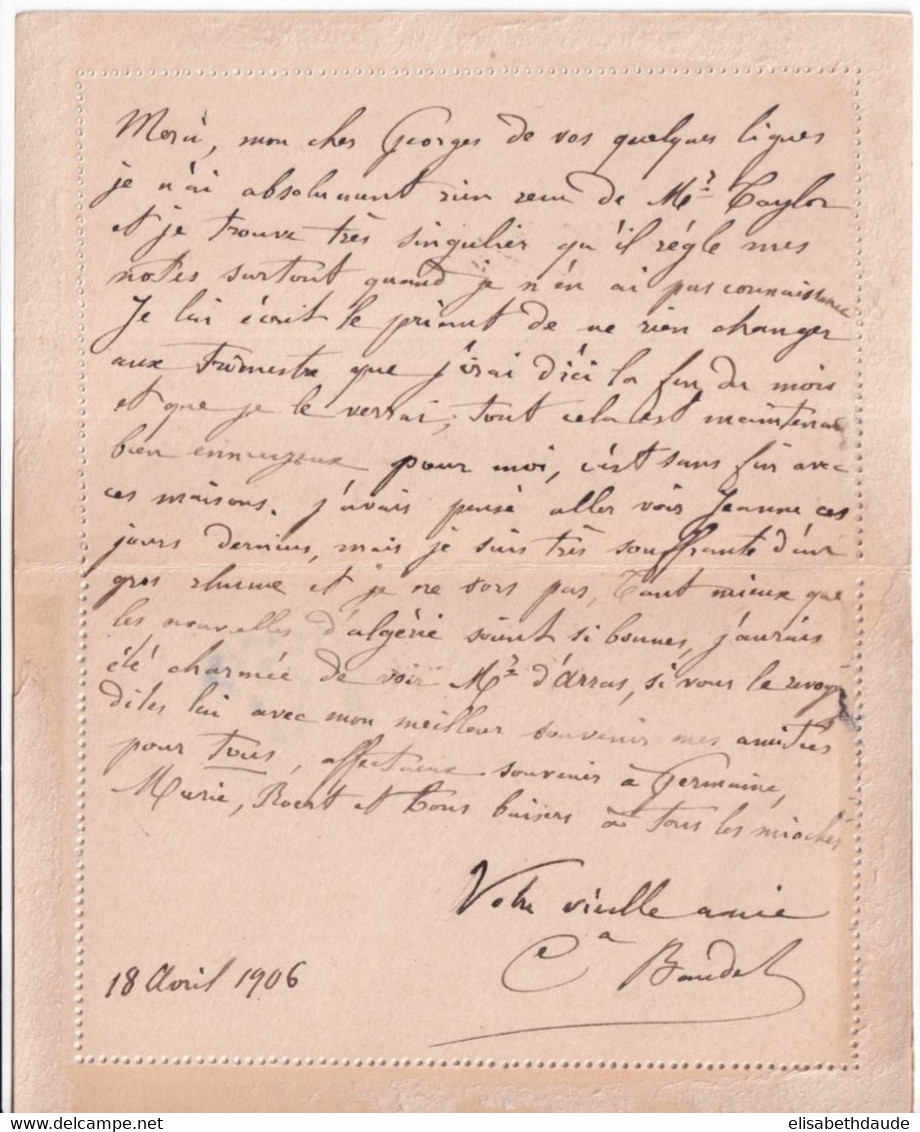 Merci, mon cher Georges de vos quelques lignes
je n'ai absolument rien reçu de Mr Taylor
et je trouve très singulier qu'il régle mes
notes surtout quand je n'en ai pas connaissance
Je lui écrit le priant de ne rien changer
aux trimestre que j'irai d'ici la fin du mois
et que je le verrai, tout cela est maintenant
bien ennuyeux pour moi, c'est sans fin avec
ces maisons. j'avais pensé aller voir Jeanne ces
jours derniers, mais je suis très souffrante d'un
gros rhume et je ne sors pas, Tant mieux que
les nouvelles d'algérie soient si bonnes, j'aurais
été charmée de voir Mr d'Arras, si vous le revoyez
dites lui avec mon meilleur souvenir mes amitiés
pour tous, affectueux souvenir à Germaine,
Marie, et bons baisers à tous les mioches
Votre vieille amie
Baudel
18 Avril 1906
elisabethdaude